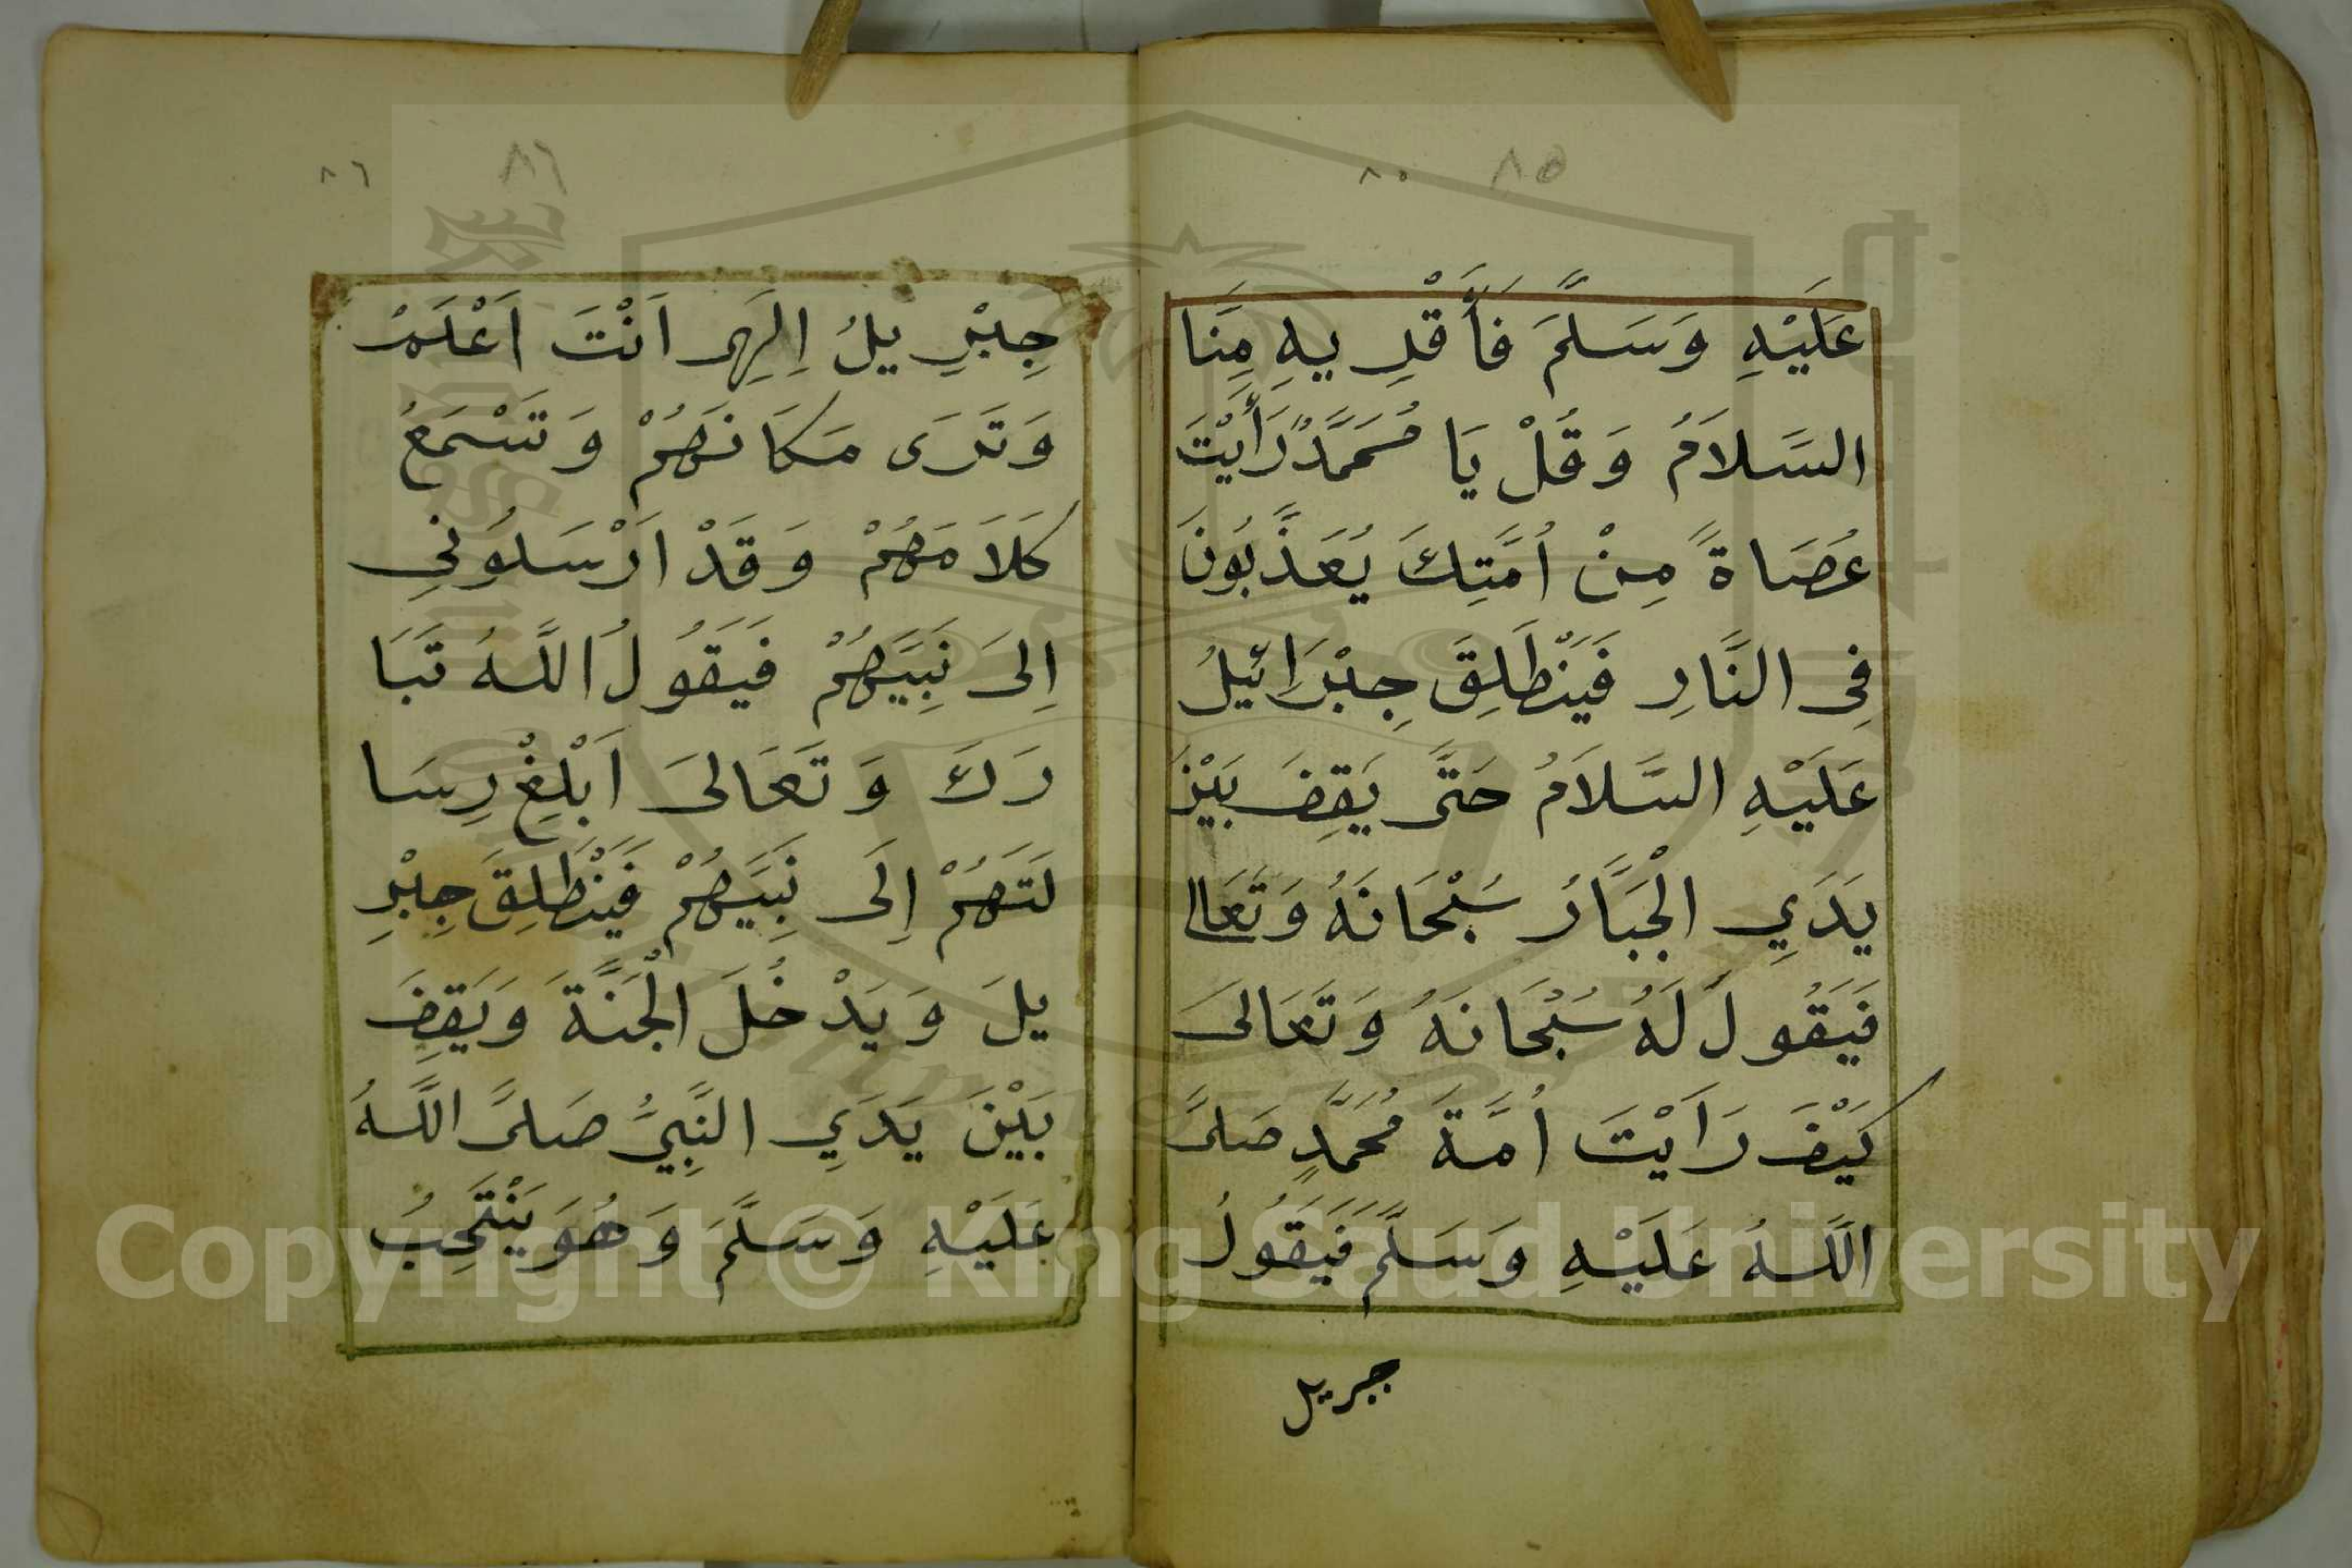 ٨٥ ٨٥
عَلَيْهِ وَسَلَّمَ فَأَقْرِيهِ مِنَّا
السَّلَامُ وَقُلْ يَا مُحَمَّدٌ رَأَيْتَ
عُصَاةً مِنْ اُمَّتِكَ يُعَذَّبُونَ
فِى النَّارِ فَيَنْطَلِقَ جِبْرَائيلُ
عَلَيْهِ السَّلَامُ حَتَّى يَقِفَ بَيْنَ
يَدَيِ الْجَبَّارُ سُبْحَانَهُ وَتَعَالَا
فَيَقُولَ لَهُ سُبْحَانَهُ وَتَعَالىَ
كَيْفَ رَاَيْتَ اُمَّةَ مُحَمَّدٍ صَلىَّ
اللَّهُ عَلَيْهِ وَسَلَّمَ فَيَقُولُ
جبريل
٨٦ ٨٦
جِبْرِيلُ اِلَهِى اَنْتَ اَعْلَمُ
وَتَرَى مَكَانَهُمْ وَتَسْمَعُ
كَلَامَهُمْ وَقَدْ اَرْسَلُونِي
اِلىَ نَبِيَّهُمْ فَيَقُولُ اللَّهُ تَبَا
رَكَ وَتَعَالىَ اَبْلِغْ رِسَا
لَتَهُمْ اِلَى نَبِيَّهُمْ فَيَنْطَلِقَ جِبْرِ
يلَ وَيَدْخُلَ الْجَنَّةَ وَيَقِفَ
بَيْنَ يَدَيِ النَّبِيُّ صَلىَّ اللَّهُ
عَلَيْهِ وَسَلَّمَ وَهُوَ يَنْتَحِبُ
Copyright © King Saud University